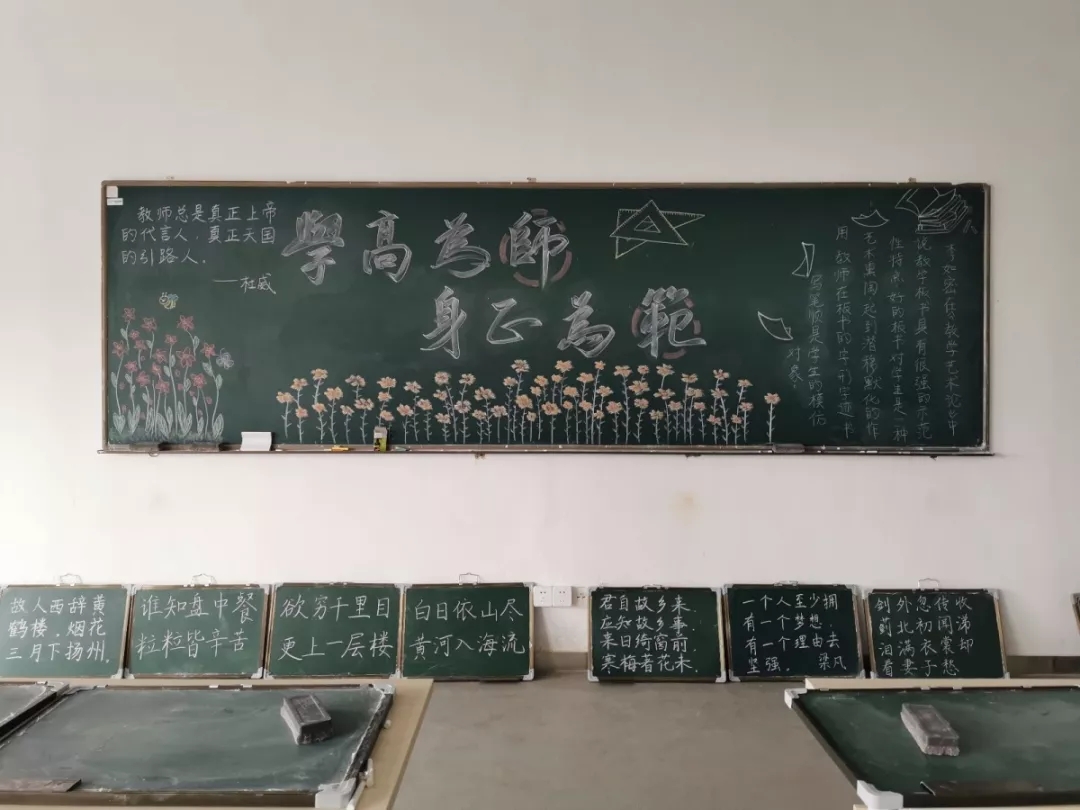 教师总是真正上帝
的代言人，真正天国
的引路人。
—杜威
學高為師
身正為範
李如密在《教学艺术论》中
说教学板书具有很强的示范
性特点好的板书对学生是一种
艺术熏陶起到潜移默化的作
用 教师在板书的字形字迹书
写笔顺是学生的模仿
对象
故人西辞黄
鹤楼，烟花
三月下扬州。
谁知盘中餐
粒粒皆辛苦
欲穷千里目
更上一层楼
白日依山尽
黄河入海流
君自故乡来，
应知故乡事
来日绮窗前，
寒梅著花未。
一个人至少拥
有一个梦想，
有一个理由去
坚强。 梁风
剑外忽传收
蓟北初闻涕
泪满衣裳却
看妻子愁